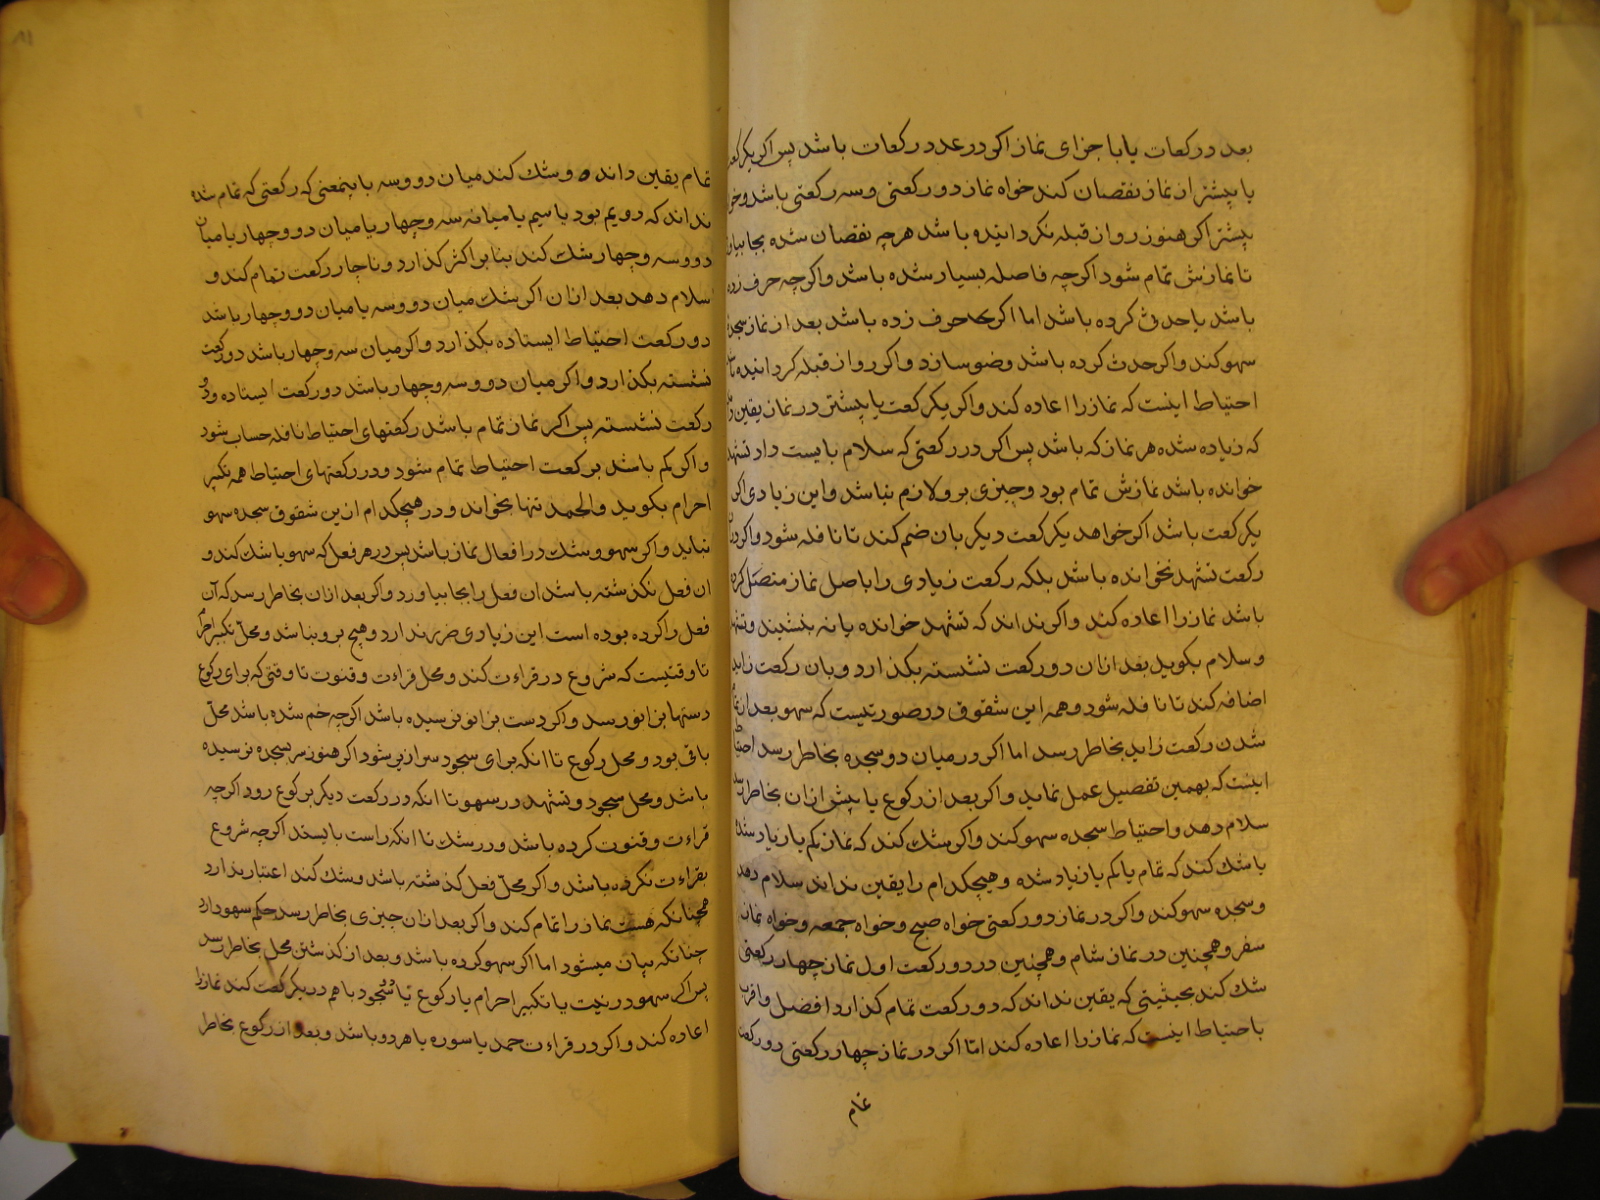 بعدد رکعات یا باجزای نماز اکر در عدد رکعات باشد پس اکر یکرکعت
یا پیشتر از نماز نقصان کند خواه نماز دو رکعتی و سه رکعتی باشد و خواه
پیشتر اکر هنوز رو از قبله نکردانیده باشد هرچه نقصان شده بجا بیاورد
تا نمازش تمام شود اکرچه فاصله بسیار شده باشد و اکرچه حرف زده
باشد یا حدث کرده باشد اما اکر حرف زده باشد بعد از نماز سجده
سهو کند و اکر حدث کرده باشد وضو سازد و اکر رو از قبله کردانیده
احتیاط اینست که نماز را اعاده کند و اکر یکرکعت یا پیشتر در نماز یقین
که زیاده شده هر نماز که باشد پس اکر در رکعتی که سلام بایست داد تشهد
خوانده باشد نمازش تمام بود و چیزی برو لازم نباشد و این زیادی اکر
یکرکعت باشد اکر خواهد یکرکعت دیکر بان ضم کند تا نافله شود و اکر در
رکعت تشهد نخوانده باشد بلکه رکعت زیادی را باصل نماز متصل کرده
باشد نماز را اعاده کند و اکر نداند که تشهد خوانده یا نه بنشیند و تشهد
و سلام بکوید بعد ازان دو رکعت نشسته بکذارد و بان رکعت زاید
اضافه کند تا نافله شود و همه این شقوق در صورتیست که سهو بعد از
شدن رکعت زاید بخاطر رسد اما اکر در میان دو سجده بخاطر رسد احتیاط
اینست که بهمین تفصیل عمل نماید و اکر بعد از رکوع یا پیش ازان بخاطر رسد
سلام دهد و احتیاط سجده سهو کند و اکر شک کند که نماز کم یا زیاد شده
یا شک کند که تمام یا کم یا زیاد شده و هیچکدام را یقین نداند سلام دهد
و سجده سهو کند و اکر در نماز دو رکعتی خواه صبح و خواه جمعه و خواه نماز
سفر و همچنین در نماز شام و همچنین در دو رکعت اول نماز چهار رکعتی
شک کند بحیثیتی که یقین نداند که دو رکعت تمام کذارد افضل و اقرب
باحتیاط اینست که نماز را اعاده کند اما اکر در نماز چهار رکعتی دو رکعت
تمام
تمام یقین داند و شک کند میان دو و سه باینمعنی که رکعتی که تمام شده
نداند که دویم بود یا سیم یا میانه سه و چهار یا میان دو و چهار یا میان
دو و سه و چهار شک کند بنا بر اکثر کذارد و ناچار رکعت تمام کند و
سلام دهد بعد ازان اکر شک میان دو و سه یا میان دو و چهار باشد
دو رکعت احتیاط ایستاده بکذارد و اکر میان سه و چهار باشد دو رکعت
نشسته بکذارد و اکر میان دو و سه و چهار باشد دو رکعت ایستاده و دو
رکعت نشسته پس اکر نماز تمام باشد رکعتهای احتیاط نافله حساب شود
و اکر کم باشد برکعت احتیاط تمام شود و در رکعتهای احتیاط همه تکبیر
احرام بکوید والحمد تنها بخواند و در هیچکدام ازین شقوق سجده سهو
نباید و اکر سهو و شک در افعال نماز باشد پس در هر فعل که سهو یا شک کند و
ان فعل نکذشته باشد ان فعل را بجا بیاورد و اکر بعد ازان بخاطر رسد که آن
فعل را کرده بوده است این زیادی ضرر ندارد و هیچ برو نباشد و محل تکبیر احرام
تا وقتیست که شروع در قراءت کند و محل قراءت و قنوت تا وقتی که برای رکوع
دستها بزانو رسد و اکر دست بزانو نرسیده باشد اکرچه خم شده باشد محل
باقی بود و محل رکوع تا انکه برای سجود سرازیر شود اکر هنوز سر بسجده نرسیده
باشد و محل سجود و تشهد در سهو تا انکه در رکعت دیکر برکوع رود اکرچه
قراءت و قنوت کرده باشد و در شک تا انکه راست بایستد اکرچه شروع
بقراءت نکرده باشد و اکر محل فعل کذشته باشد و شک کند اعتبار ندارد
همچنانکه هست نماز را تمام کند و اکر بعد ازان چیزی بخاطر رسد حکم سهو دارد
چنانکه بیان میشود اما اکر سهو کرده باشد و بعد از کذشتن محل بخاطر رسد
پس اکر سهو در نیت یا تکبیر احرام یا رکوع یا سجود باهم در یکرکعت کند نماز را
اعاده کند و اکر در قراءت حمد یا سوره یا هر دو باشد و بعد از رکوع بخاطر